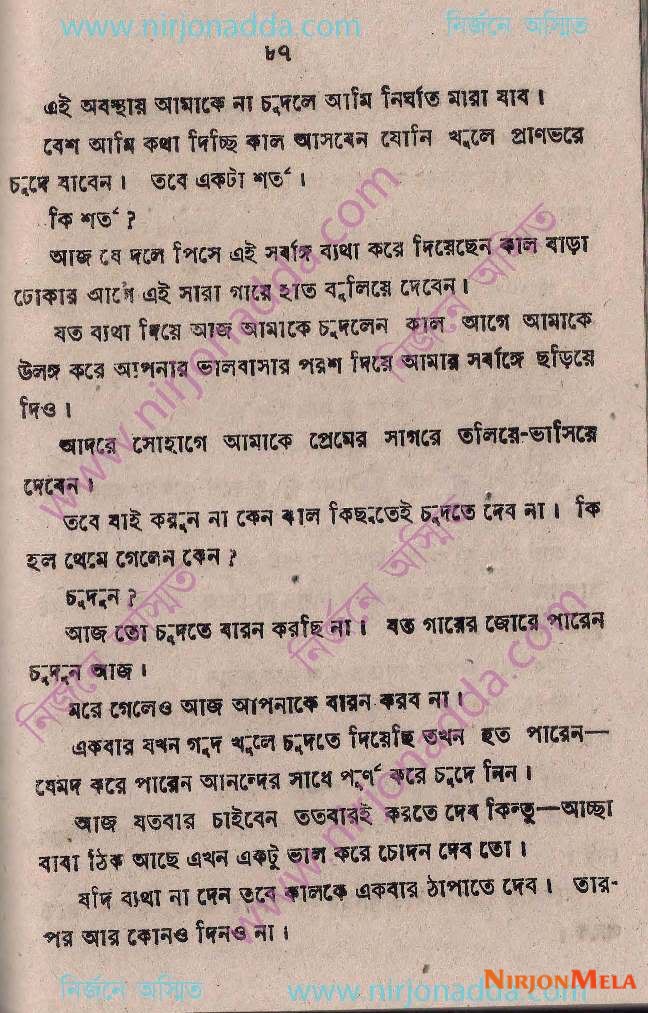 www.nirjonadda.com নির্জনে অস্মিত
৮৭
এই অবস্থায় আমাকে না চুদলে আমি নির্ঘাত মারা যাব।
বেশ আমি কথা দিচ্ছি কাল আসবেন যোনি খুলে প্রাণভরে
চুদে যাবেন। তবে একটা শর্ত।
কি শর্ত?
আজ যে দলে পিসে এই সর্বাঙ্গ ব্যথা করে দিয়েছেন কাল বাড়া
ঢোকার আগে এই সারা গায়ে হাত বুলিয়ে দেবেন।
যত ব্যথা দিয়ে আজ আমাকে চুদলেন কাল আগে আমাকে
উলঙ্গ করে আপনার ভালবাসার পরশ দিয়ে আমার সর্বাঙ্গে ছড়িয়ে
দিও।
আদরে সোহাগে আমাকে প্রেমের সাগরে তলিয়ে-ভাসিয়ে
দেবেন।
তবে যাই করুন না কেন কাল কিছুতেই চুদতে দেব না। কি
হল থেমে গেলেন কেন?
চুদুন?
আজ তো চুদতে বারন করছি না। যত গায়ের জোরে পারেন
চুদুন আজ।
মরে গেলেও আজ আপনাকে বারন করব না।
একবার যখন গুদ খুলে চুদতে দিয়েছি তখন হত পারেন—
যেমদ করে পারেন আনন্দের সাধে পূর্ণ করে চুদে নিন।
আজ যতবার চাইবেন ততবারই করতে দেব কিন্তু—আচ্ছা
বাবা ঠিক আছে এখন একটু ভাল করে চোদন দেব তো।
যদি ব্যথা না দেন তবে কালকে একবার ঠাপাতে দেব। তার-
পর আর কোনও দিনও না।
নির্জনে অস্মিত www.nirjonadda.com
NIRJONMELA
www.nirjonadda.com
নির্জনে অস্মিত
নির্জনে অস্মিত
নির্জনে অস্মিত
www.nirjonadda.com